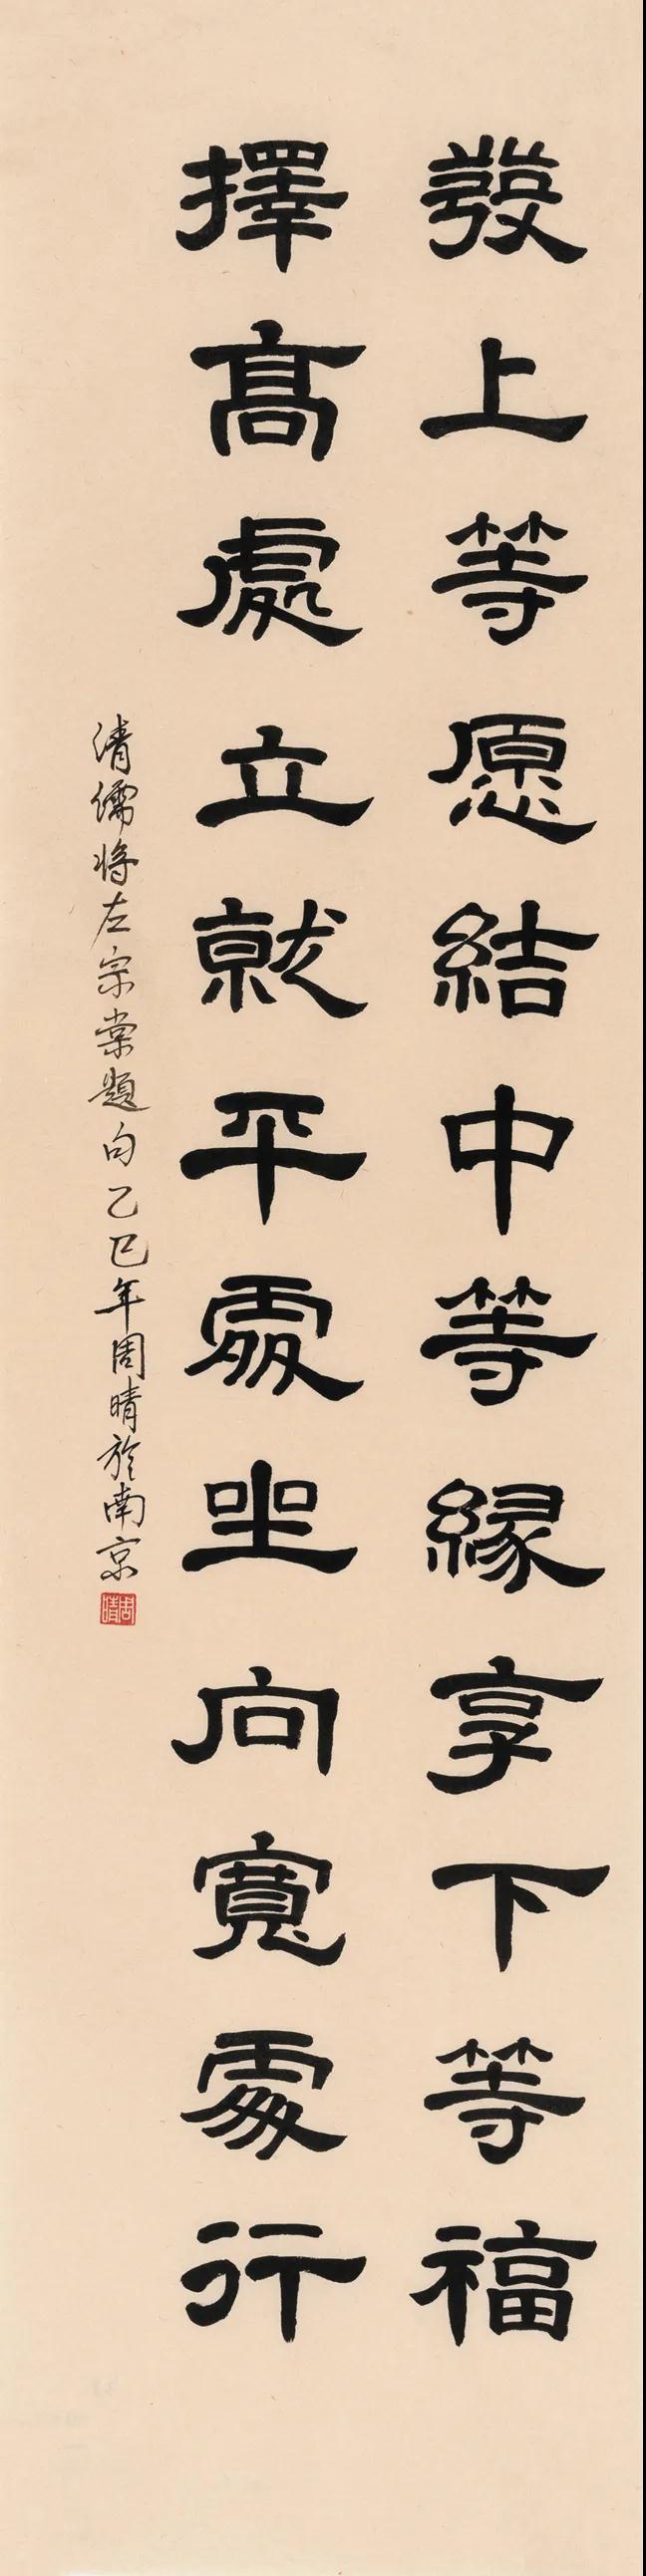 發上等愿結中等緣享下等福
擇髙處立就平處坐向寬處行
清儒将左宗棠題句乙巳年周晴於南京
周晴